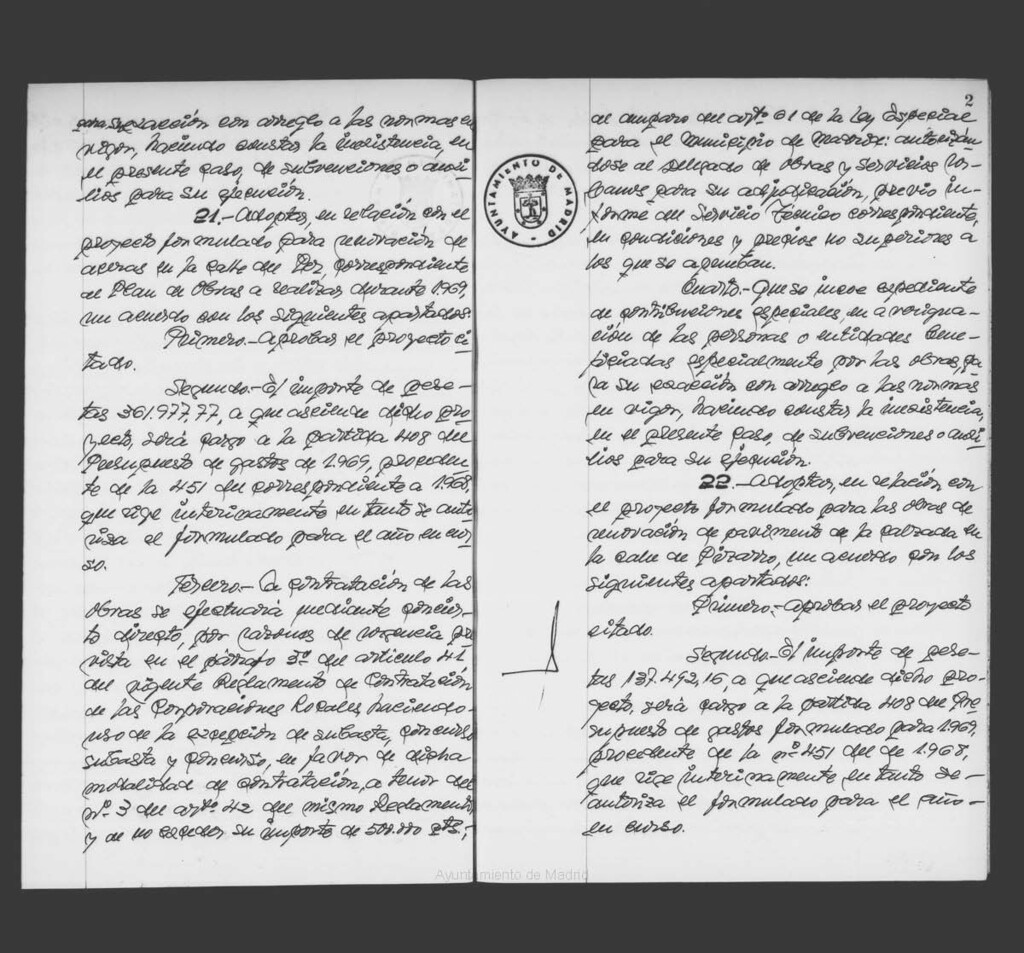 para su exacción con arreglo a las normas en
vigor, haciendo constar la inexistencia, en
el presente caso, de subvenciones o auxi-
lios para su ejecución.
21.- Adoptar, en relación con el
proyecto formulado para renovación de
aceras en la calle del Pez, correspondiente
al Plan de Obras a realizar durante 1.969,
un acuerdo con los siguientes apartados:
Primero.- Aprobar el proyecto ci-
tado.
Segundo.- El importe de pese-
tas 361.977,77, a que asciende dicho pro-
yecto, será cargo a la partida 408 del
Presupuesto de gastos de 1.969, proceden-
te de la 451 del correspondiente a 1.968,
que rige interinamente en tanto se auto-
riza el formulado para el año en cur-
so.
Tercero.- La contratación de las
obras se efectuará mediante concier-
to directo, por razones de urgencia pre-
vista en el párrafo 3º del artículo 41
del vigente Reglamento de Contratación
de las Corporaciones Locales, haciendo
uso de la excepción de subasta, concurso
subasta y concurso, en favor de dicha
modalidad de contratación, a tenor del
nº. 3 del artº. 42 del mismo Reglamento
y de no exceder su importe de 500.000 pts.,
2
al amparo del artº. 61 de la Ley Especial
para el Municipio de Madrid: autorizán-
dose al Delegado de Obras y Servicios Ur-
banos para su adjudicación, previo in-
forme del Servicio Técnico correspondiente,
en condiciones y precios no superiores a
los que se aprueban.
Cuarto.- Que se incoe expediente
de contribuciones especiales, en averigua-
ción de las personas o entidades bene-
ficiadas especialmente por las obras, pa-
ra su exacción con arreglo a las normas
en vigor, haciendo constar la inexistencia,
en el presente caso, de subvenciones o auxi-
lios para su ejecución.
22.- Adoptar, en relación con
el proyecto formulado para las obras de
renovación de pavimento de la calzada en
la calle de Pizarro, un acuerdo con los
siguientes apartados:
Primero.- Aprobar el proyecto
citado.
Segundo.- El importe de pese-
tas 137.492,16, a que asciende dicho pro-
yecto, será cargo a la partida 408 del Pre-
supuesto de gastos formulado para 1.969,
procedente de la nº. 451 del de 1.968,
que rige interinamente en tanto se
autoriza el formulado para el año
en curso.
AYUNTAMIENTO DE MADRID
Ayuntamiento de Madrid